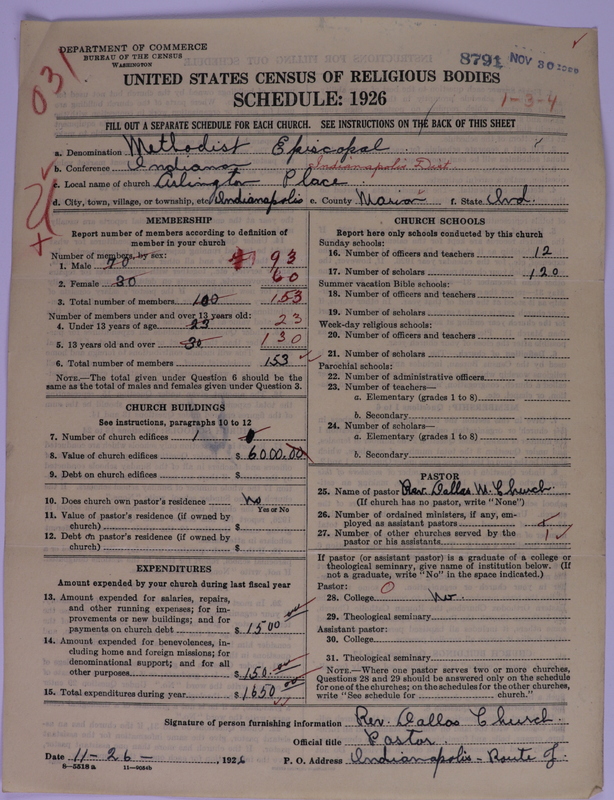 DEPARTMENT OF COMMERCE
BUREAU OF THE CENSUS
WASHINGTON
8791 NOV 30
031
UNITED STATES CENSUS OF RELIGIOUS BODIES
SCHEDULE: 1926
1-3-4
FILL OUT A SEPARATE SCHEDULE FOR EACH CHURCH. SEE INSTRUCTIONS ON THE BACK OF THIS SHEET
a. Denomination Methodist Episcopal
b. Conference Indiana Indianapolis Dist.
c. Local name of church Arlington Place
d. City, town, village, or township, etc. Indianapolis e. County Marion f. State Ind.
MEMBERSHIP
Report number of members according to definition of member in your church
Number of members, by sex:
1. Male 70 93
2. Female 30 60
3. Total number of members 100 153
Number of members under and over 13 years old:
4. Under 13 years of age 23 23
5. 13 years old and over 30 130
6. Total number of members 153
NOTE.—The total given under Question 6 should be the same as the total of males and females given under Question 3.
CHURCH BUILDINGS
See instructions, paragraphs 10 to 12
7. Number of church edifices 1
8. Value of church edifices $ 6000.00
9. Debt on church edifices $
10. Does church own pastor's residence No
Yes or No
11. Value of pastor's residence (if owned by church) $
12. Debt on pastor's residence (if owned by church) $
EXPENDITURES
Amount expended by your church during last fiscal year
13. Amount expended for salaries, repairs, and other running expenses; for improvements or new buildings; and for payments on church debt $ 1500
14. Amount expended for benevolences, including home and foreign missions; for denominational support; and for all other purposes $ 150.
15. Total expenditures during year $ 1650
CHURCH SCHOOLS
Report here only schools conducted by this church
Sunday schools:
16. Number of officers and teachers 12
17. Number of scholars 120
Summer vacation Bible schools:
18. Number of officers and teachers
19. Number of scholars
Week-day religious schools:
20. Number of officers and teachers
21. Number of scholars
Parochial schools:
22. Number of administrative officers
23. Number of teachers—
a. Elementary (grades 1 to 8)
b. Secondary
24. Number of scholars—
a. Elementary (grades 1 to 8)
b. Secondary
PASTOR
25. Name of pastor Rev. Dallas M. Church.
(If church has no pastor, write "None")
26. Number of ordained ministers, if any, employed as assistant pastors
27. Number of other churches served by the pastor or his assistants 1
If pastor (or assistant pastor) is a graduate of a college or theological seminary, give name of institution below. (If not a graduate, write "No" in the space indicated.)
Pastor: 0
28. College No.
29. Theological seminary
Assistant pastor:
30. College
31. Theological seminary
NOTE.—Where one pastor serves two or more churches, Questions 28 and 29 should be answered only on the schedule for one of the churches; on the schedules for the other churches, write "See schedule for church."
Signature of person furnishing information Rev. Dallas Church.
Official title Pastor.
Date 11-26-, 1926 P. O. Address Indianapolis - Route J.
8-5518 a 11-9054b